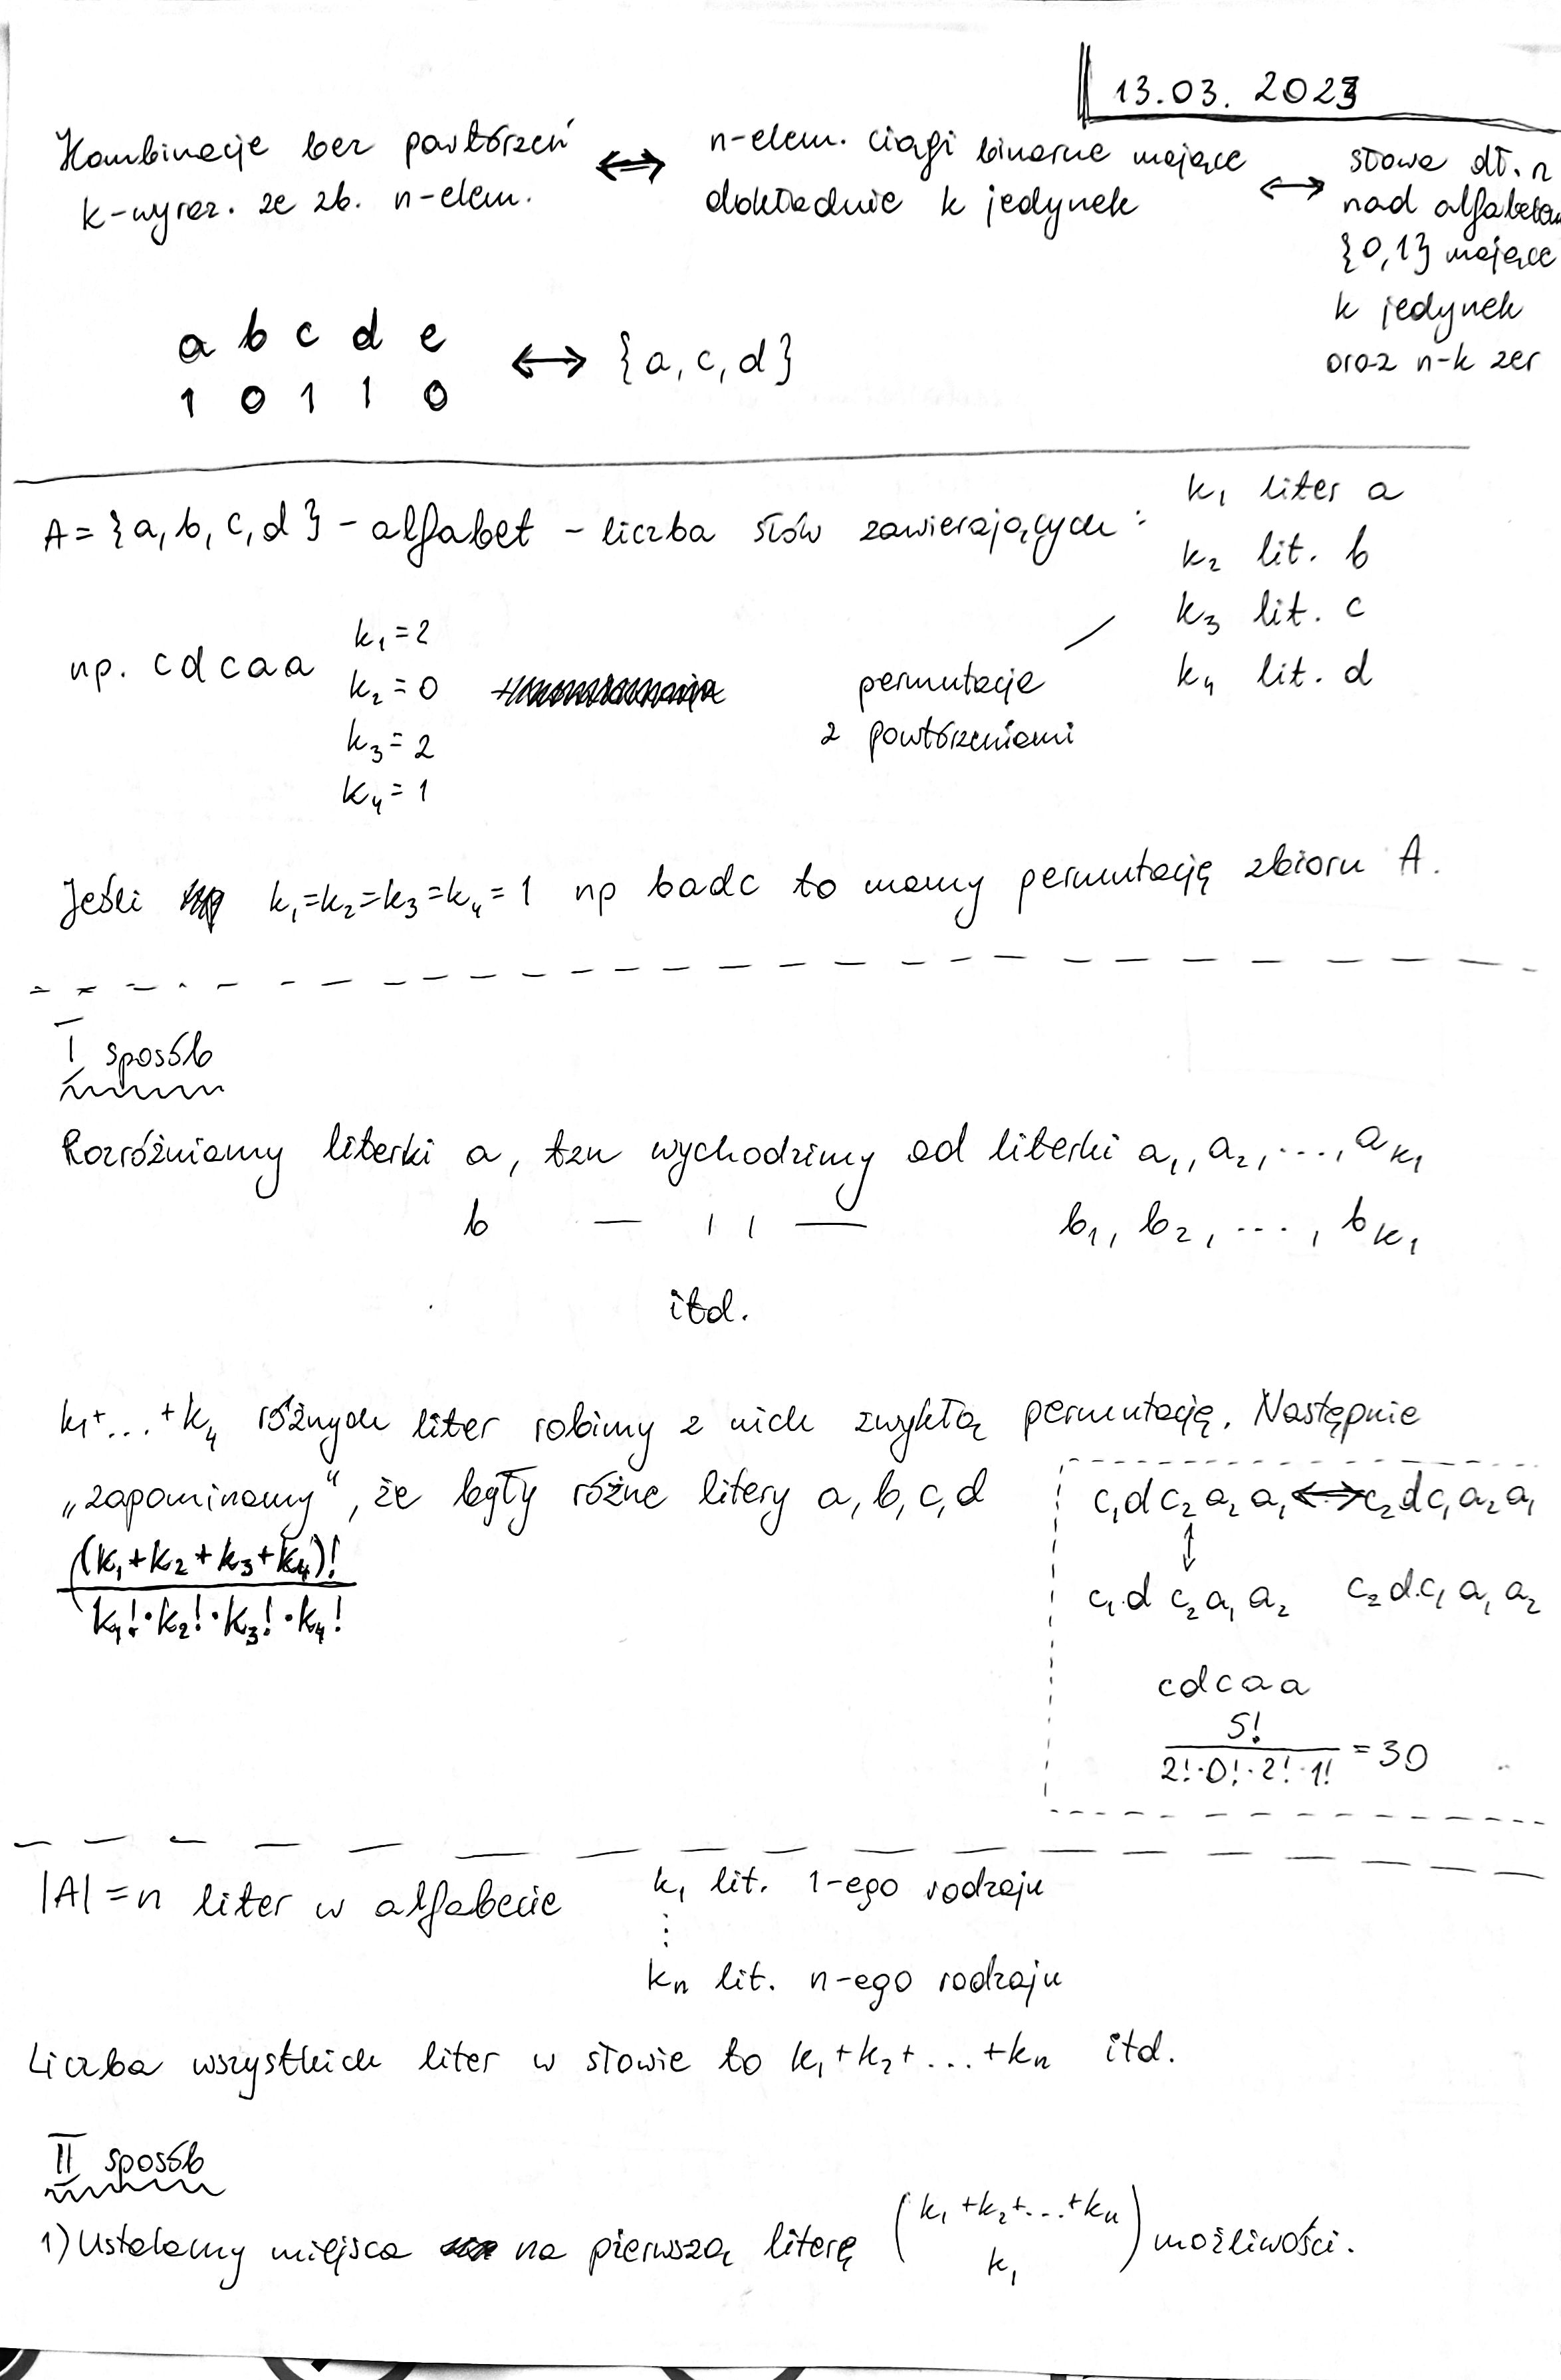 13.03. 2023
Kombinacje bez powtórzeń ⟷ n-elem. ciągi binarne mające ⟷ słowa dł. n
k-wyraz. ze zb. n-elem. dokładnie k jedynek nad alfabetem
{0,1} mające
k jedynek
oraz n-k zer
a b c d e
1 0 1 1 0 ⟷ {a, c, d}
A = {a, b, c, d} - alfabet - liczba słów zawierających:
k₁ liter a
k₂ lit. b
k₃ lit. c
k₄ lit. d
np. c d c a a
k₁ = 2
k₂ = 0
k₃ = 2
k₄ = 1
permutacje
z powtórzeniami
Jeśli k₁=k₂=k₃=k₄=1 np badc to mamy permutację zbioru A.
I sposób
Rozróżniamy literki a, tzn wychodzimy od literki a₁, a₂, ..., a_k₁
b — ,, — b₁, b₂, ..., b_k₁
itd.
k₁+...+k₄ różnych liter robimy z nich zwykłą permutację. Następnie
„zapominamy", że były różne litery a, b, c, d
(k₁+k₂+k₃+k₄)!
k₁!·k₂!·k₃!·k₄!
c₁dc₂a₂a₁ ⟷ c₂dc₁a₂a₁
↕
c₁dc₂a₁a₂ c₂dc₁a₁a₂
cdcaa
5!
2!·0!·2!·1! = 30
|A| = n liter w alfabecie
k₁ lit. 1-ego rodzaju
⋮
kₙ lit. n-ego rodzaju
Liczba wszystkich liter w słowie to k₁+k₂+...+kₙ itd.
II sposób
1) Ustalamy miejsca na pierwszą literę (k₁+k₂+...+kₙ
k₁) możliwości.